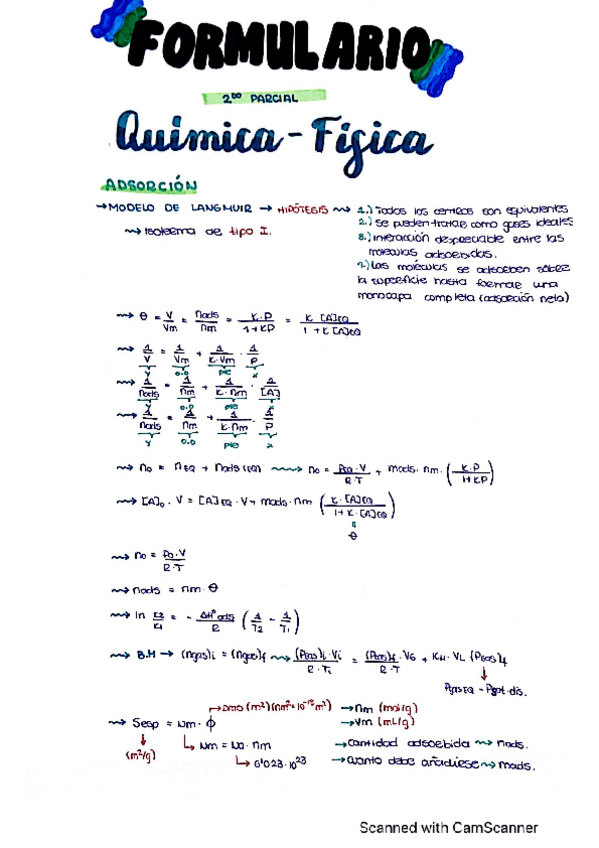 FORMULARIO
2DO PARCIAL
Química - Física
ADSORCIÓN
→ MODELO DE LANGMUIR → HIPÓTESIS ⇝ 1.) Todos los centros son equivalentes
2.) Se pueden tratar como gases ideales
3.) Interacción despreciable entre las
moléculas adsorbidas.
⇝ Isoterma de tipo I.
2.) Las moléculas se adsorben sobre
la superficie hasta formar una
monocapa completa (adsorción neta)
⇝ θ = V/Vm = nads/nm = K·P/1+KP = K [A]EQ/1+K[A]EQ
⇝ 1/V = 1/Vm + 1/K·Vm · 1/P
y o.o pte x
⇝ 1/nads = 1/nm + 1/K·nm · 1/[A]
y o.o pte x
⇝ 1/nads = 1/nm + 1/K·nm · 1/P
y o.o pte x
⇝ no = nEQ + nads(EQ) ⇝ no = PEQ·V/R·T + mads·nm·(K·P/1+KP)
⇝ [A]o·V = [A]EQ·V + mads·nm (K·[A]EQ/1+K·[A]EQ)
θ
⇝ no = Po·V/R·T
⇝ nads = nm·θ
⇝ ln K2/K1 = - ΔHºads/R (1/T2 - 1/T1)
⇝ B.M → (ngas)i = (ngas)f ⇝ (Pgas)i·Vi/R·Ti = (Pgas)f/R·T·VG + KH·VL (Pgas)f
↓
⇝ Sesp = Nm·ϕ
↓
(m²/g)
→ Nm = Na·nm
→ 6'023·10²³
→ nm (mol/g)
→ Vm (mL/g)
→ cantidad adsorbida ⇝ nads.
→ cuanto debe añadirse ⇝ mads.
Scanned with CamScanner